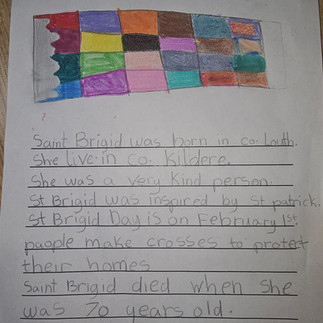 Saint Brigid was born in co. Louth.
She live in co. Kildere.
She was a very kind person.
St Brigid was inspired by St patrick.
St Brigid Day is on February 1st.
paople make crosses to protect
their homes
Saint Brigid died when she
was 70 years old.